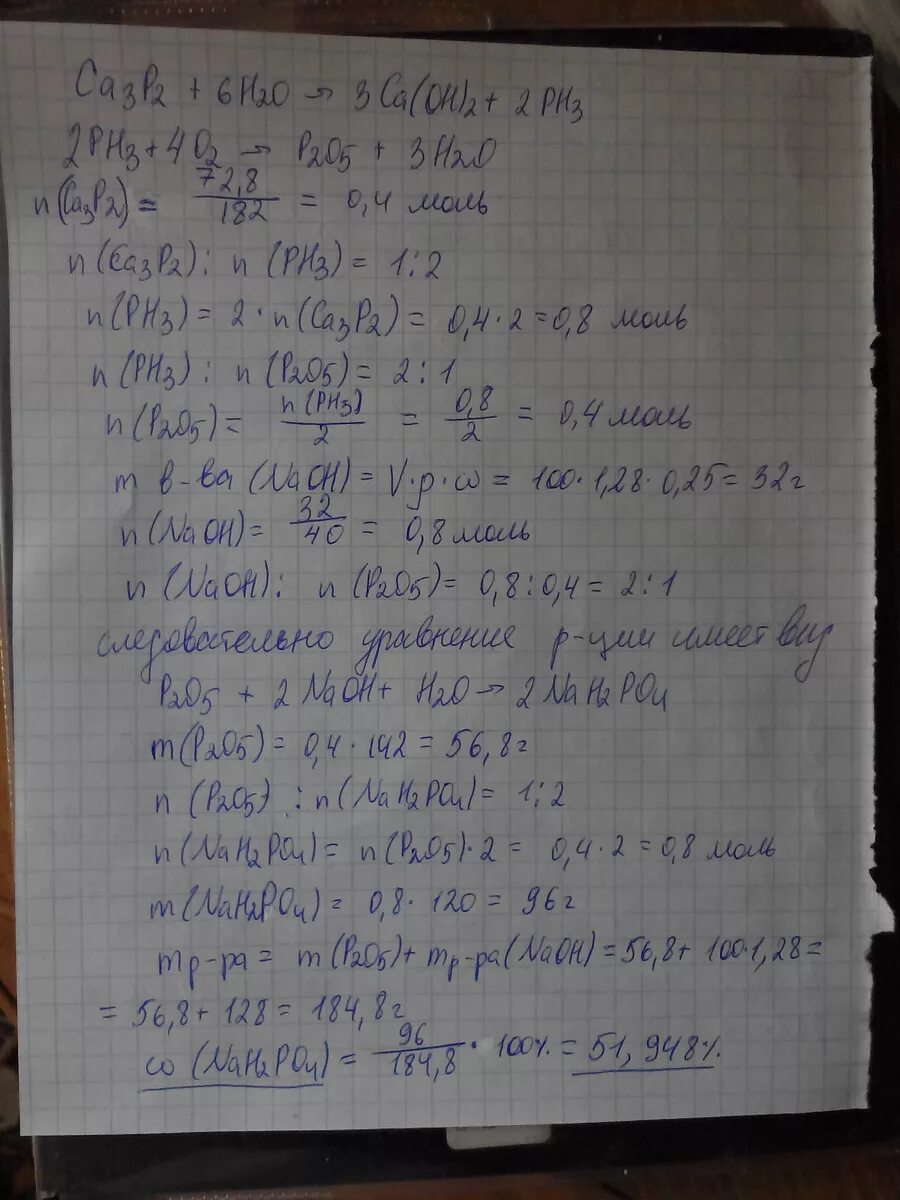 Ca3P2 + 6H2O → 3Ca(OH)2 + 2PH3
2PH3 + 4O2 → P2O5 + 3H2O
n(Ca3P2) = 72,8/182 = 0,4 моль
n(Ca3P2) : n(PH3) = 1:2
n(PH3) = 2·n(Ca3P2) = 0,4·2 = 0,8 моль
n(PH3) : n(P2O5) = 2:1
n(P2O5) = n(PH3)/2 = 0,8/2 = 0,4 моль
m в-ва (NaOH) = V·ρ·ω = 100·1,28·0,25 = 32г
n(NaOH) = 32/40 = 0,8 моль
n(NaOH) : n(P2O5) = 0,8:0,4 = 2:1
следовательно уравнение р-ции имеет вид
P2O5 + 2NaOH + H2O → 2NaH2PO4
m(P2O5) = 0,4·142 = 56,8г
n(P2O5) : n(NaH2PO4) = 1:2
n(NaH2PO4) = n(P2O5)·2 = 0,4·2 = 0,8 моль
m(NaH2PO4) = 0,8·120 = 96г
mр-ра = m(P2O5) + mр-ра(NaOH) = 56,8 + 100·1,28 =
= 56,8 + 128 = 184,8г
ω(NaH2PO4) = 96/184,8 · 100% = 51,948%